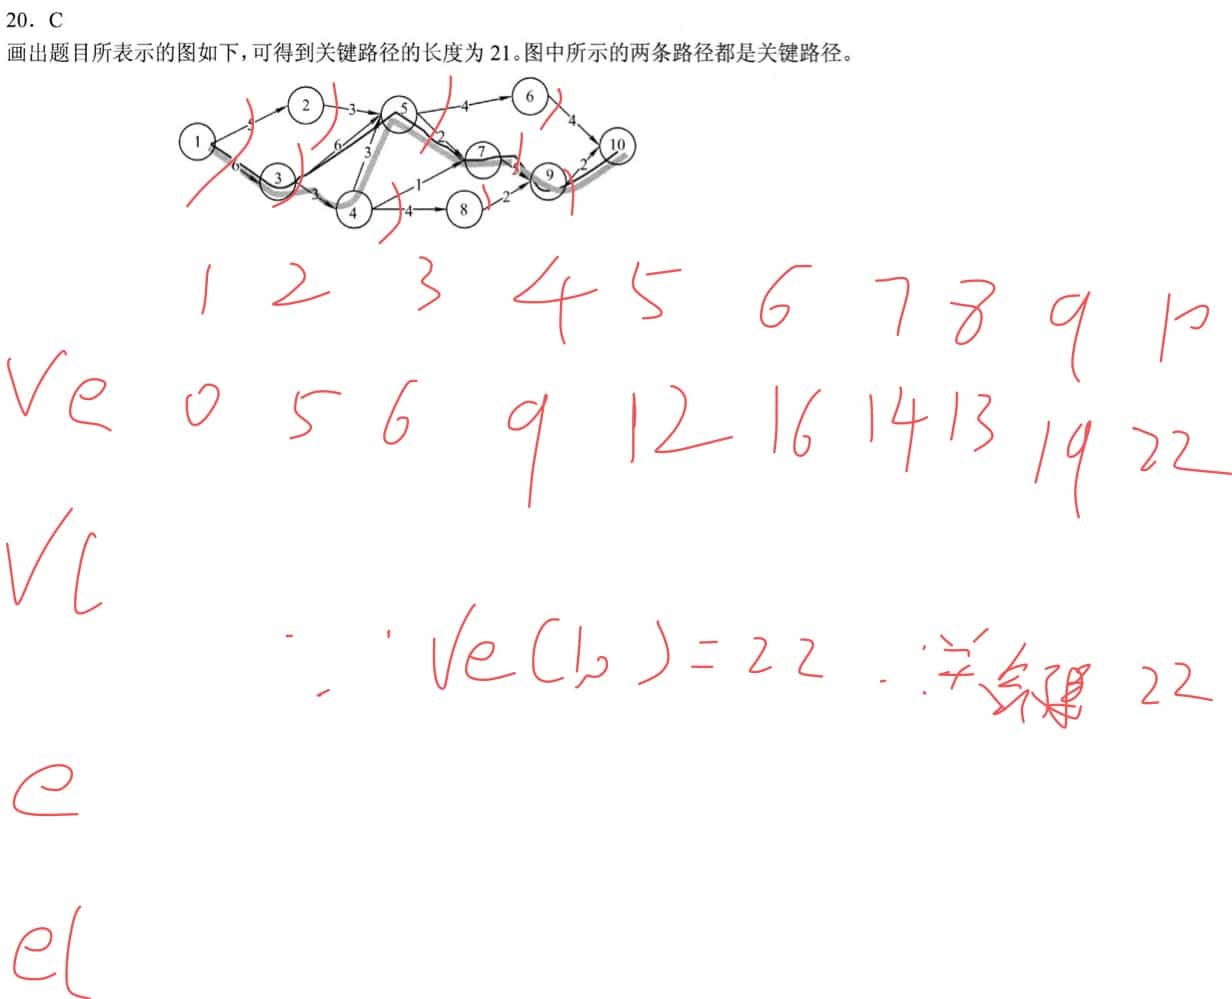 20. C
画出题目所表示的图如下,可得到关键路径的长度为 21。图中所示的两条路径都是关键路径。
2 6
3 5 4
1 5 4 10
6 2 7 2
6 3 3 1 9
3 4 4 8 2
1 2 3 4 5 6 7 8 9 10
Ve 0 5 6 9 12 16 14 13 19 22
Vl
∵ Ve(10)=22 ∴关键 22
e
el